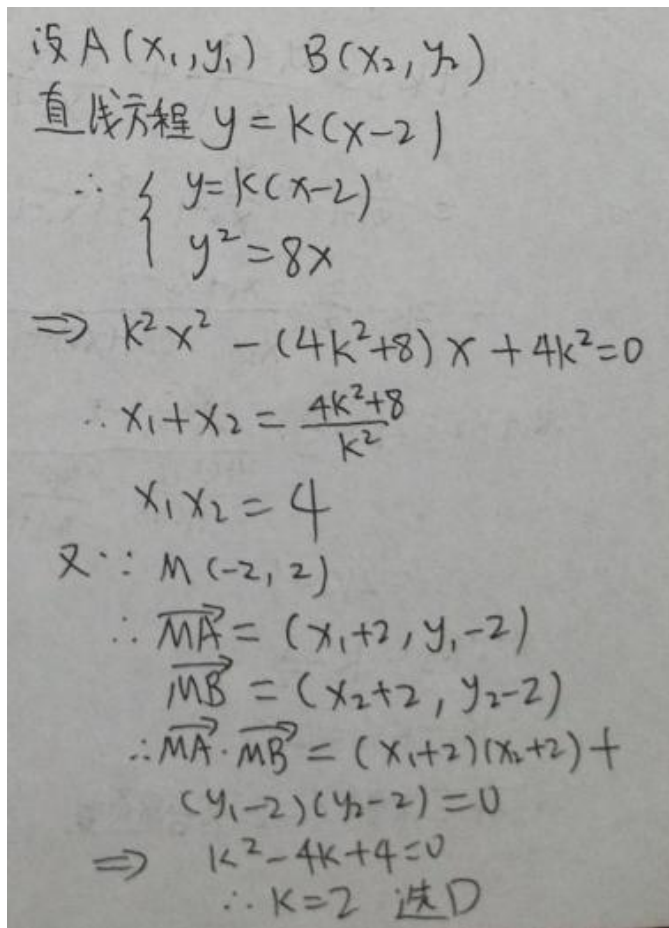 设A(x₁,y₁) B(x₂,y₂)
直线方程 y=k(x-2)
∴ { y=k(x-2)
y²=8x
⇒ k²x²-(4k²+8)x+4k²=0
∴ x₁+x₂=\frac{4k²+8}{k²}
x₁x₂=4
又∵ M(-2,2)
∴ \overrightarrow{MA}=(x₁+2,y₁-2)
\overrightarrow{MB}=(x₂+2,y₂-2)
∴\overrightarrow{MA}·\overrightarrow{MB}=(x₁+2)(x₂+2)+
(y₁-2)(y₂-2)=0
⇒ k²-4k+4=0
∴ k=2 选D